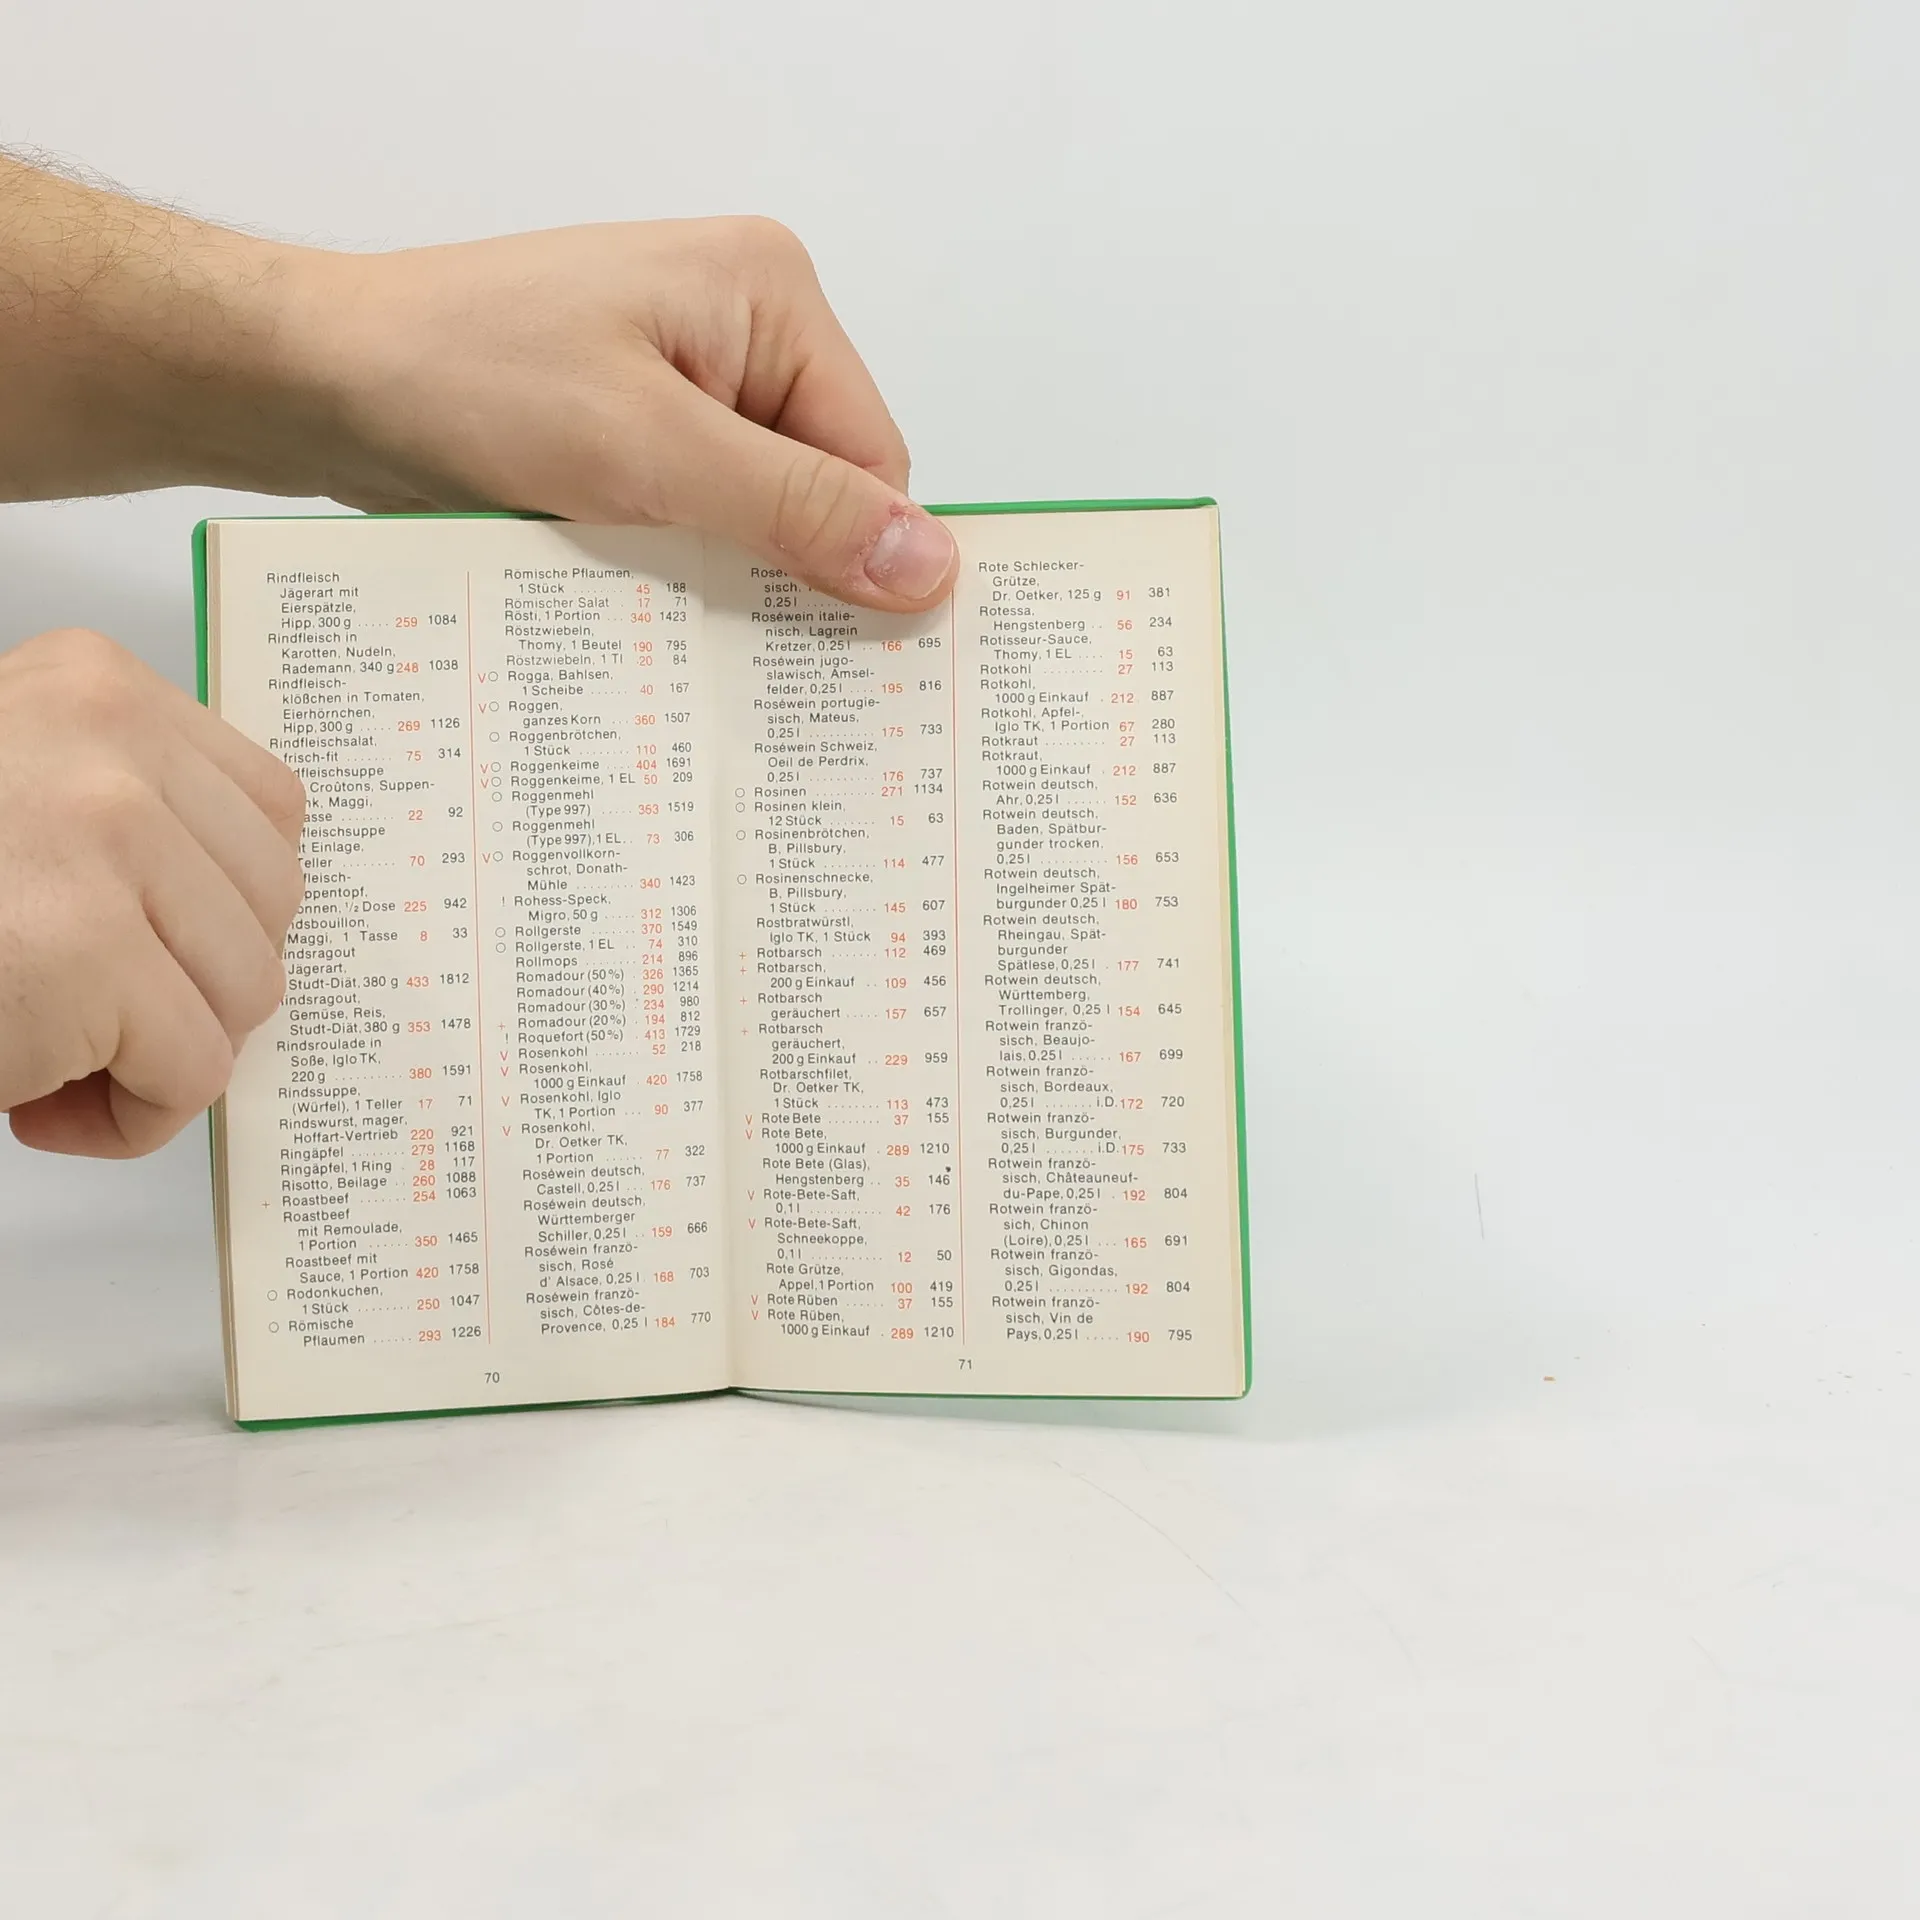 Rindfleisch
Jägerart mit
Eierspätzle,
Hipp, 300 g ..... 259 1084
Rindfleisch in
Karotten, Nudeln,
Rademann, 340 g 248 1038
Rindfleisch-
klößchen in Tomaten,
Eierhörnchen,
Hipp, 300 g ..... 269 1126
Rindfleischsalat,
frisch-fit ....... 75 314
dfleischsuppe
Croûtons, Suppen-
nk, Maggi,
asse ........ 22 92
fleischsuppe
t Einlage,
Teller ....... 70 293
fleisch-
ppentopf,
onnen, 1/2 Dose 225 942
ndsbouillon,
Maggi, 1 Tasse 8 33
indsragout
Jägerart,
Studt-Diät, 380 g 433 1812
indsragout,
Gemüse, Reis,
Studt-Diät, 380 g 353 1478
Rindsroulade in
Soße, Iglo TK,
220 g .......... 380 1591
Rindssuppe,
(Würfel), 1 Teller 17 71
Rindswurst, mager,
Hoffart-Vertrieb 220 921
Ringäpfel ........ 279 1168
Ringäpfel, 1 Ring . 28 117
Risotto, Beilage .. 260 1088
+ Roastbeef ....... 254 1063
Roastbeef
mit Remoulade,
1 Portion ...... 350 1465
Roastbeef mit
Sauce, 1 Portion 420 1758
○ Rodonkuchen,
1 Stück ........ 250 1047
○ Römische
Pflaumen ...... 293 1226
Römische Pflaumen,
1 Stück ........ 45 188
Römischer Salat . 17 71
Rösti, 1 Portion ... 340 1423
Röstzwiebeln,
Thomy, 1 Beutel 190 795
Röstzwiebeln, 1 Tl 20 84
V○ Rogga, Bahlsen,
1 Scheibe ...... 40 167
V○ Roggen,
ganzes Korn ... 360 1507
○ Roggenbrötchen,
1 Stück ........ 110 460
V○ Roggenkeime .... 404 1691
V○ Roggenkeime, 1 EL 50 209
○ Roggenmehl
(Type 997) ..... 363 1519
○ Roggenmehl
(Type 997), 1 EL . . 73 306
V○ Roggenvollkorn-
schrot, Donath-
Mühle ......... 340 1423
! Rohess-Speck,
Migro, 50 g ..... 312 1306
○ Rollgerste ....... 370 1549
○ Rollgerste, 1 EL .. 74 310
Rollmops ........ 214 896
Romadour (50%) . 326 1365
Romadour (40%) . 290 1214
Romadour (30%) . 234 980
+ Romadour (20%) . 194 812
! Roquefort (50%) . 413 1729
V Rosenkohl ....... 52 218
V Rosenkohl,
1000 g Einkauf . 420 1758
V Rosenkohl, Iglo
TK, 1 Portion ... 90 377
V Rosenkohl,
Dr. Oetker TK,
1 Portion ...... 77 322
Roséwein deutsch,
Castell, 0,25 l ... 176 737
Roséwein deutsch,
Württemberger
Schiller, 0,25 l .. 159 666
Roséwein franzö-
sisch, Rosé
d' Alsace, 0,25 l . 168 703
Roséwein franzö-
sisch, Côtes-de-
Provence, 0,25 l 184 770
70
Rosé
sisch,
0,25 l .......
Roséwein italie-
nisch, Lagrein
Kretzer, 0,25 l .. 166 695
Roséwein jugo-
slawisch, Amsel-
felder, 0,25 l .... 195 816
Roséwein portugie-
sisch, Mateus,
0,25 l .......... 175 733
Roséwein Schweiz,
Oeil de Perdrix,
0,25 l .......... 176 737
○ Rosinen ......... 271 1134
○ Rosinen klein,
12 Stück ....... 15 63
○ Rosinenbrötchen,
B, Pillsbury,
1 Stück ........ 114 477
○ Rosinenschnecke,
B, Pillsbury,
1 Stück ........ 145 607
Rostbratwürstl,
Iglo TK, 1 Stück 94 393
+ Rotbarsch ....... 112 469
+ Rotbarsch,
200 g Einkauf .. 109 456
+ Rotbarsch
geräuchert ..... 157 657
+ Rotbarsch
geräuchert,
200 g Einkauf .. 229 959
Rotbarschfilet,
Dr. Oetker TK,
1 Stück ........ 113 473
V Rote Bete ........ 37 155
V Rote Bete,
1000 g Einkauf . 289 1210
Rote Bete (Glas),
Hengstenberg .. 35 146
V Rote-Bete-Saft,
0,1 l ........... 42 176
V Rote-Bete-Saft,
Schneekoppe,
0,1 l ........... 12 50
Rote Grütze,
Appel, 1 Portion 100 419
V Rote Rüben ...... 37 155
V Rote Rüben,
1000 g Einkauf . 289 1210
Rote Schlecker-
Grütze,
Dr. Oetker, 125 g 91 381
Rotessa,
Hengstenberg .. 56 234
Rotisseur-Sauce,
Thomy, 1 EL .... 15 63
Rotkohl ......... 27 113
Rotkohl,
1000 g Einkauf . 212 887
Rotkohl, Apfel-,
Iglo TK, 1 Portion 67 280
Rotkraut ......... 27 113
Rotkraut,
1000 g Einkauf . 212 887
Rotwein deutsch,
Ahr, 0,25 l ...... 152 636
Rotwein deutsch,
Baden, Spätbur-
gunder trocken,
0,25 l .......... 156 653
Rotwein deutsch,
Ingelheimer Spät-
burgunder 0,25 l 180 753
Rotwein deutsch,
Rheingau, Spät-
burgunder
Spätlese, 0,25 l . 177 741
Rotwein deutsch,
Württemberg,
Trollinger, 0,25 l 154 645
Rotwein franzö-
sisch, Beaujo-
lais, 0,25 l ...... 167 699
Rotwein franzö-
sisch, Bordeaux,
0,25 l ....... i.D. 172 720
Rotwein franzö-
sisch, Burgunder,
0,25 l ....... i.D. 175 733
Rotwein franzö-
sisch, Châteauneuf-
du-Pape, 0,25 l . 192 804
Rotwein franzö-
sich, Chinon
(Loire), 0,25 l ... 165 691
Rotwein franzö-
sisch, Gigondas,
0,25 l .......... 192 804
Rotwein franzö-
sisch, Vin de
Pays, 0,25 l ..... 190 795
71